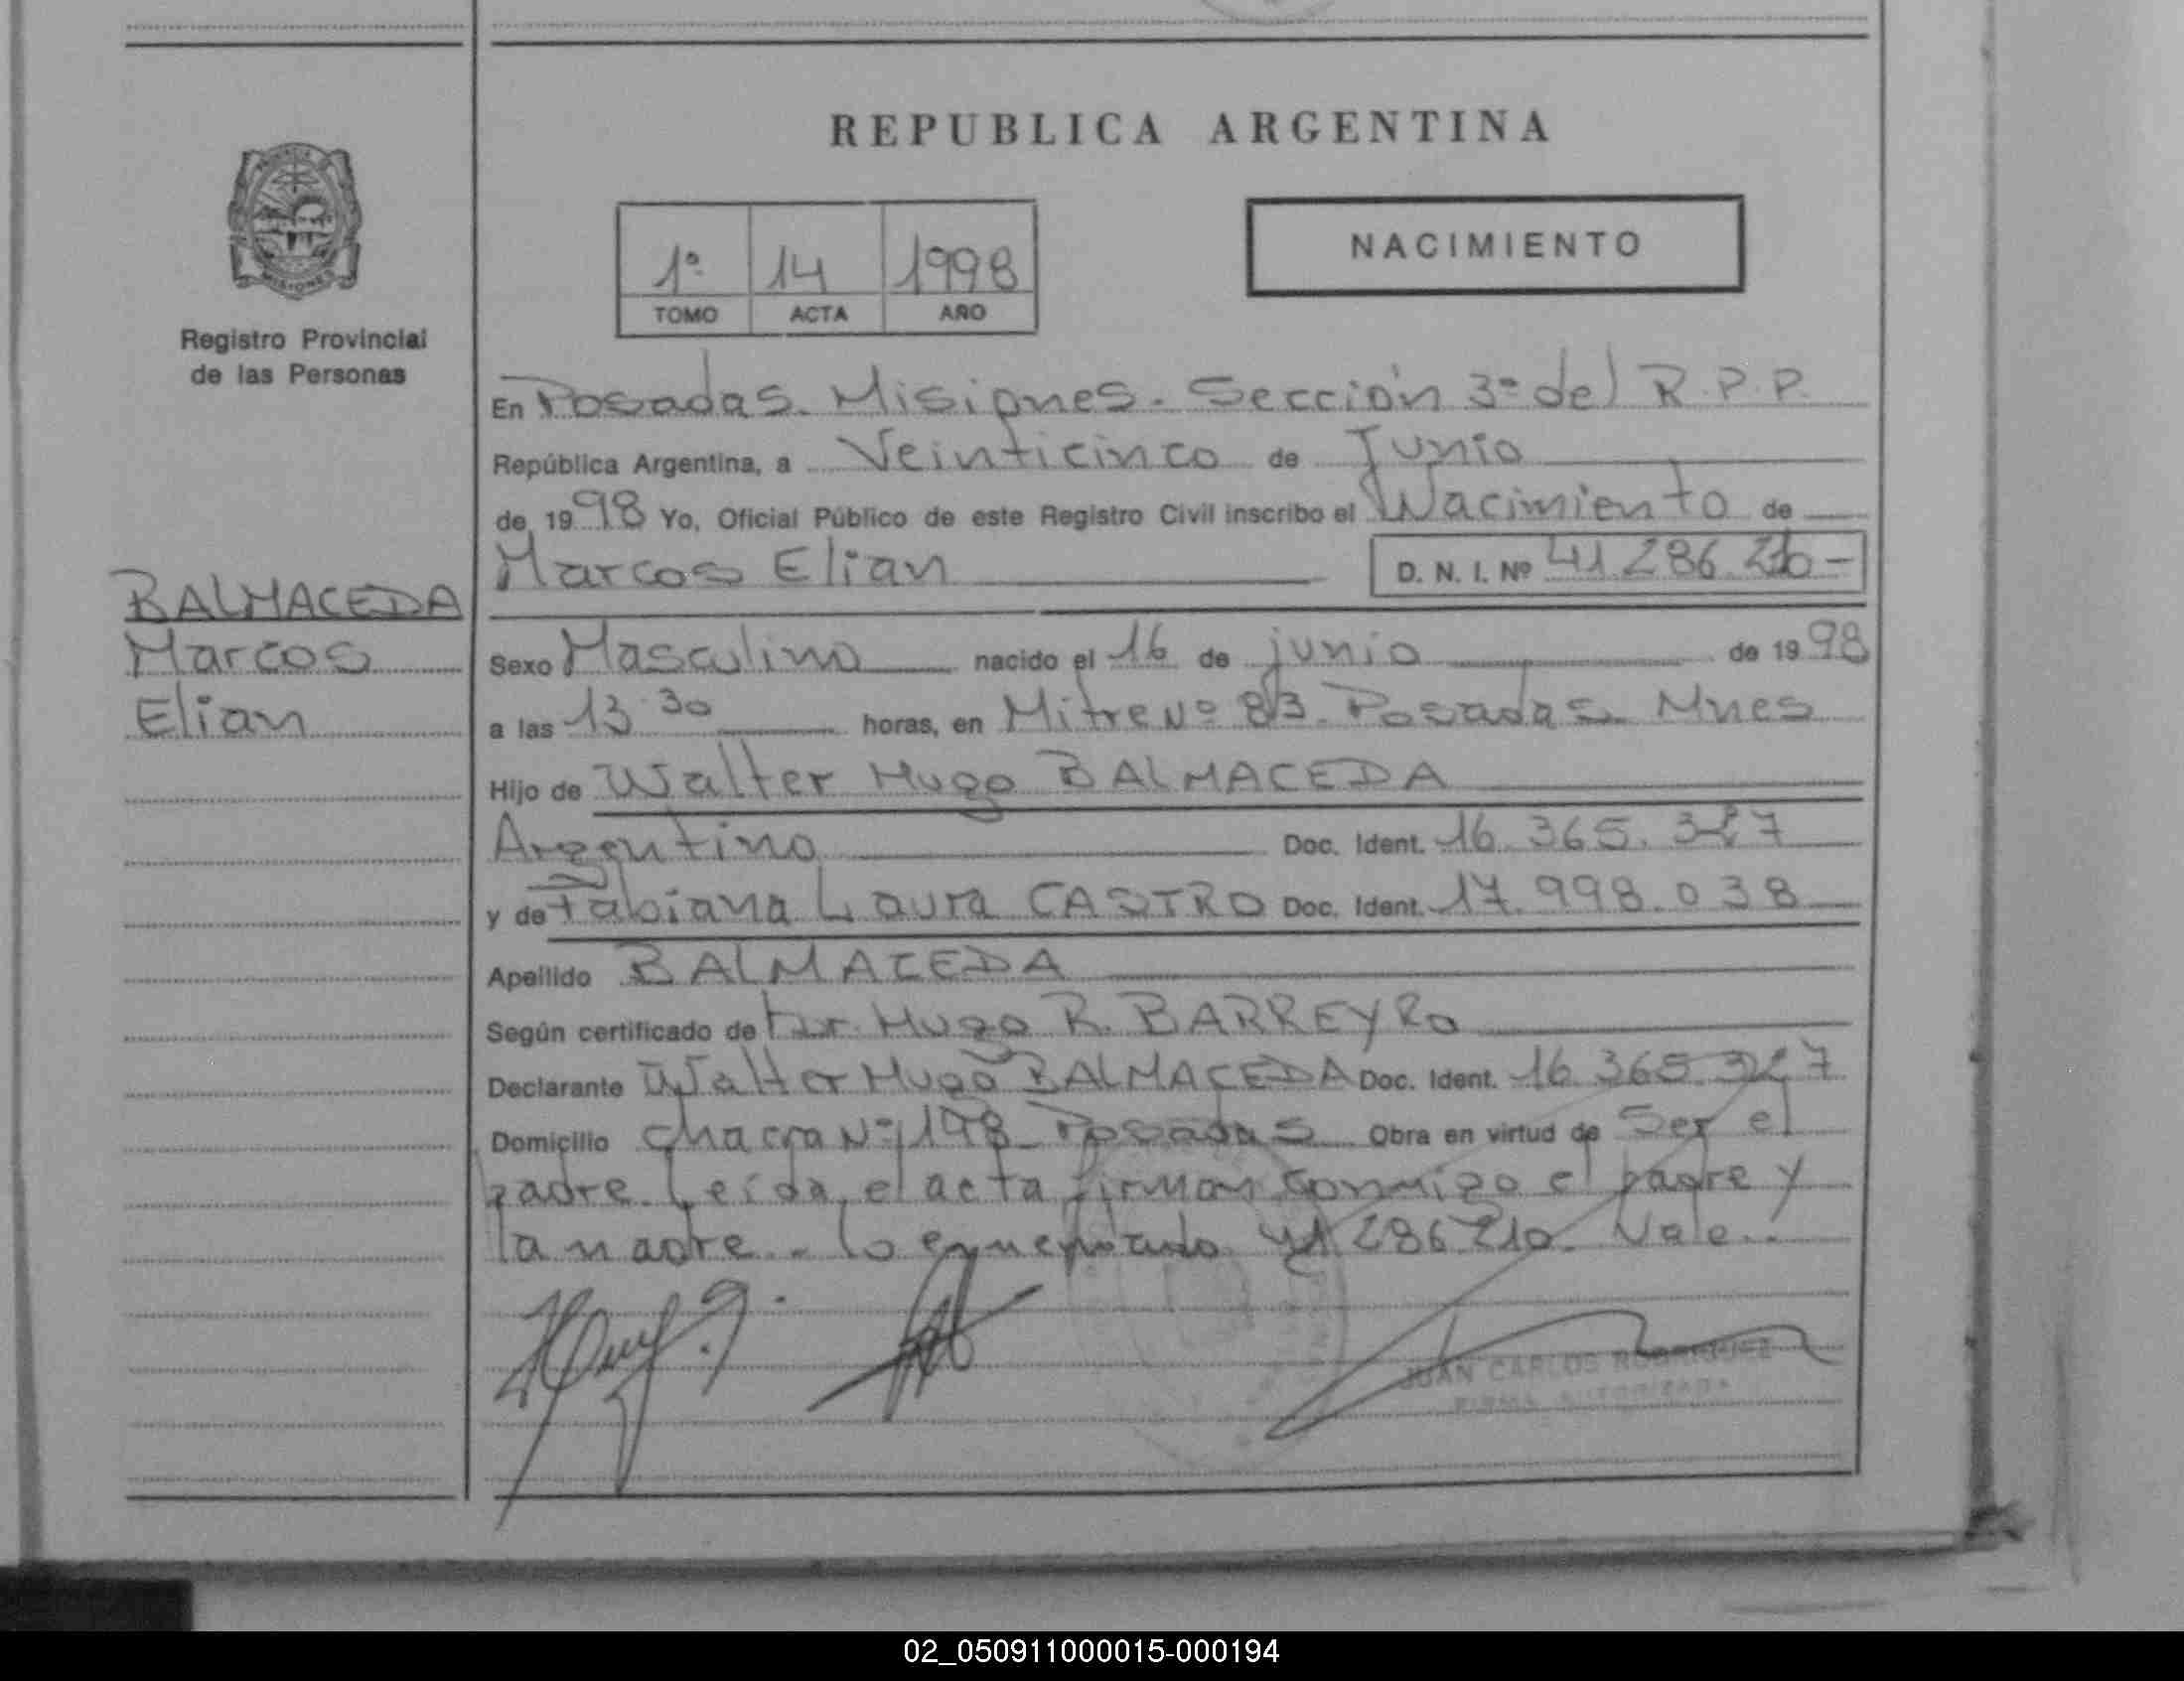 REPUBLICA ARGENTINA
1º 14 1998
TOMO ACTA AÑO
NACIMIENTO
Registro Provincial
de las Personas
En Posadas. Misiones. Sección 3ª del R.P.P.
República Argentina, a Veinticinco de Junio
de 1998 Yo, Oficial Público de este Registro Civil inscribo el Nacimiento de
Marcos Elian D. N. I. Nº 41.286.210-
BALMACEDA
Marcos
Elian
Sexo Masculino nacido el 16 de junio de 1998
a las 13 30 horas, en Mitre Nº 83. Posadas Mnes
Hijo de Walter Hugo BALMACEDA
Argentino Doc. Ident. 16.365.327
y de Fabiana Laura CASTRO Doc. Ident. 17.998.038
Apellido BALMACEDA
Según certificado de Dr. Hugo R. BARREYRO
Declarante Walter Hugo BALMACEDA Doc. Ident. 16.365.327
Domicilio chacra Nº 198 Posadas Obra en virtud de Ser el
padre. Leída el acta firman conmigo el padre y
la madre. lo enmendado 41.286.210. Vale.
JUAN CARLOS RODRIGUEZ
FIRMA AUTORIZADA
02_050911000015-000194